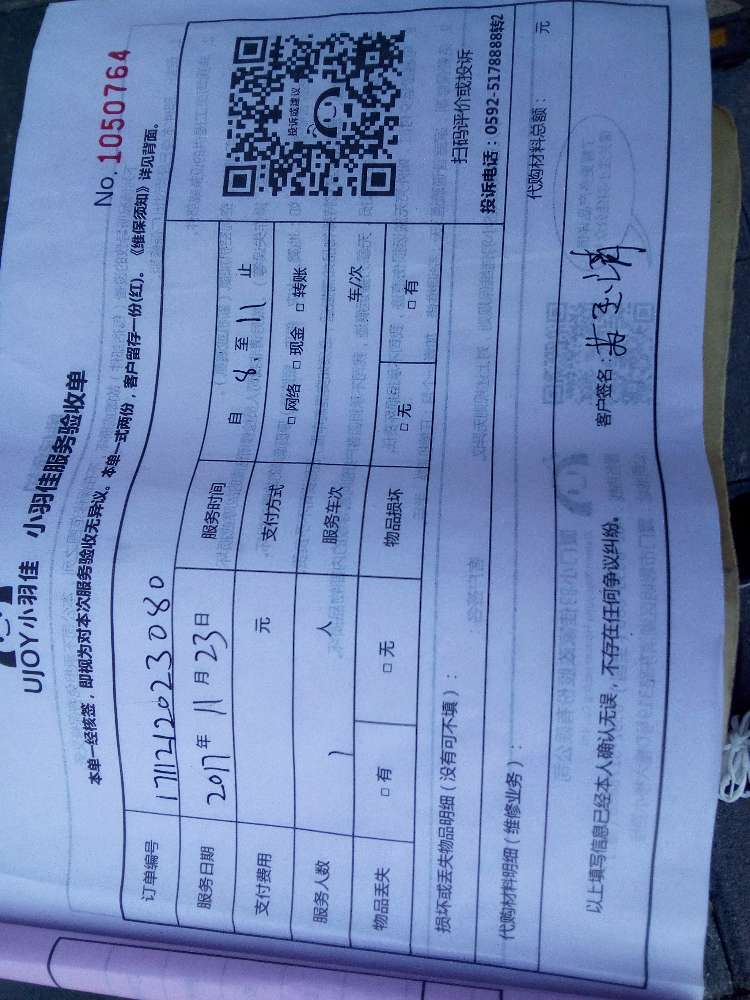 UJOY小羽佳 小羽佳服务验收单
No. 1050764
本单一经核签，即视为对本次服务验收无异议。本单一式两份，客户留存一份(红)。《维保须知》详见背面。
订单编号 171121202 3080
服务日期 2017年 11月 23日 服务时间 自 8 至 11 止
支付费用 元 支付方式 □网络 □现金 □转账
服务人数 1 人 服务车次 车/次
物品丢失 □有 □无 物品损坏 □无 □有
投诉或建议
扫码评价或投诉
投诉电话：0592-5178888转2
损坏或丢失物品明细（没有可不填）：
代购材料明细（维修业务）： 代购材料总额： 元
以上填写信息已经本人确认无误，不存在任何争议纠纷。 客户签名：